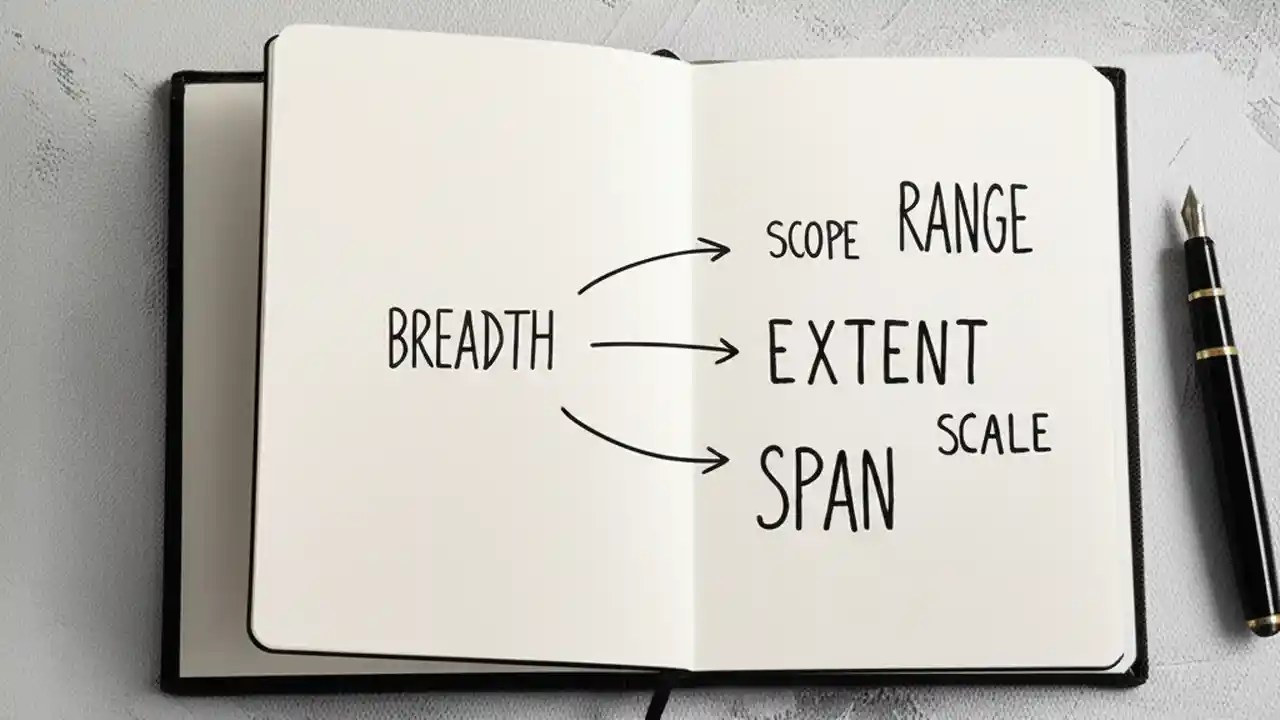 BREADTH
SCOPE RANGE
EXTENT
SCALE
SPAN